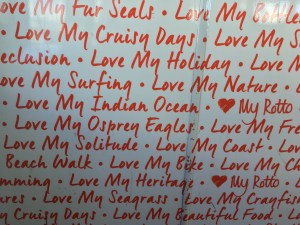 Love My Fur Seals • Love My
Love My Cruisy Days • Love My S
eclusion • Love My Holiday • Love M
Love My Surfing • Love My Nature • L
• Love My Indian Ocean • ♥ My Rotto
Love My Osprey Eagles • Love My Fr
Love My Solitude • Love My Coast • Lo
Beach Walk • Love My Bike • Love My Ch
mming • Love My Heritage • ♥ My Rotto •
ures • Love My Seagrass • Love My Crayfish
y Cruisy Days • Love My Beautiful Food • Lo